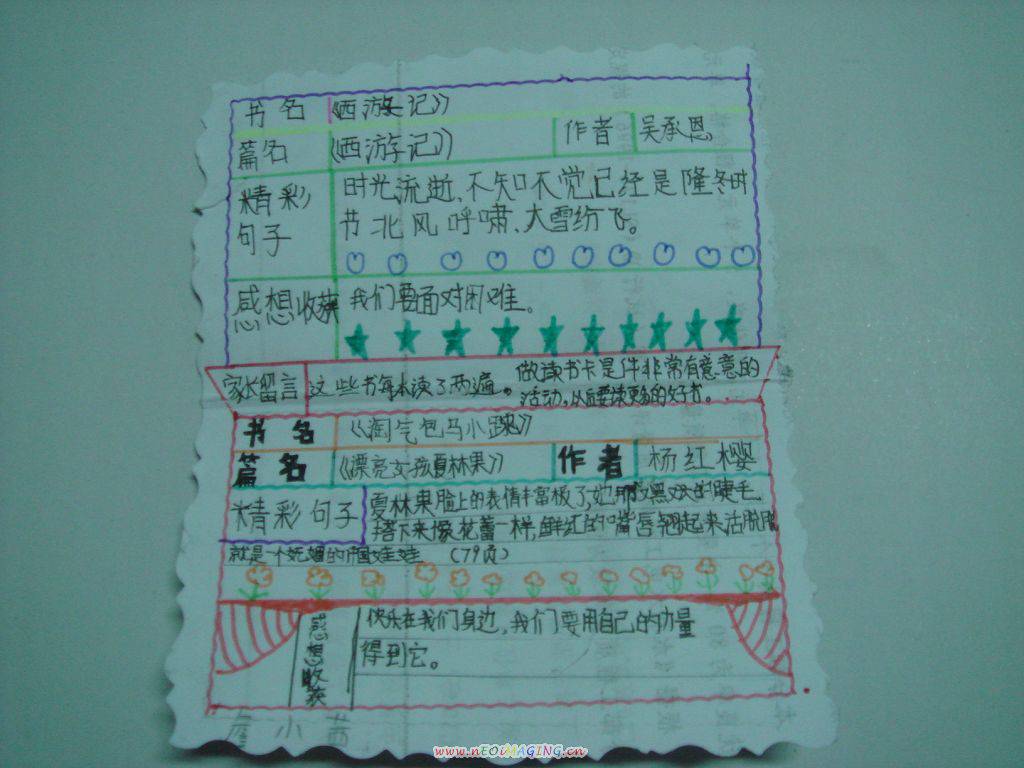 书名 《西游记》
篇名 《西游记》 作者 吴承恩
精彩句子 时光流逝,不知不觉已经是隆冬时
节北风呼啸、大雪纷飞。
感想收获 我们要面对困难。
家长留言 这些书每本读了两遍。做读书卡是件非常有意义的
活动,以后要读更多的好书。
书名 《淘气包马小跳》
篇名 《漂亮女孩夏林果》 作者 杨红樱
精彩句子 夏林果脸上的表情丰富极了,她那黑灰的睫毛,
搭下来像花蕾一样,鲜红的嘴唇翘起来活脱脱
就是一个妩媚的中国娃娃 (79页)
感想收获 快乐在我们身边,我们要用自己的力量
得到它。
小茜
www.nEOiMAGING.cn